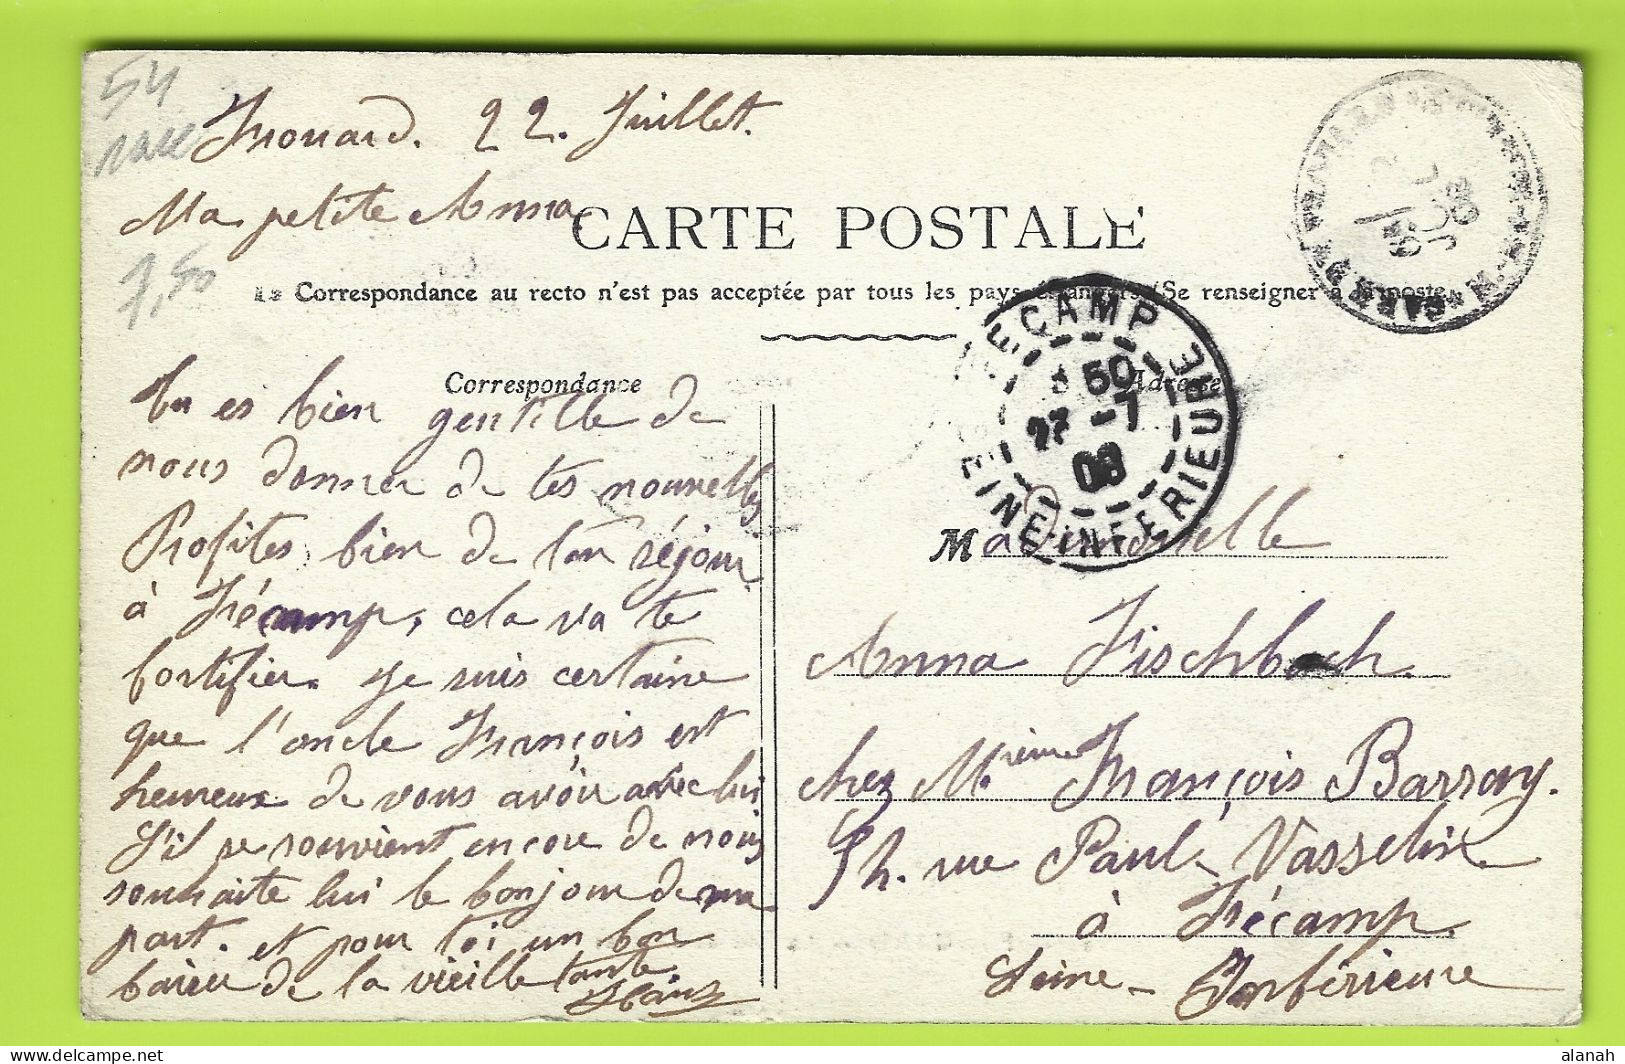 54
Frouard. 22. Juillet.
Ma petite Anna
7,50
CARTE POSTALE
La Correspondance au recto n'est pas acceptée par tous les pays étrangers (Se renseigner à la poste
Correspondance
Adresse
FECAMP
SEINE INFERIEURE
50
22 -7
08
GARE
Tu es bien gentille de
nous donner de tes nouvelles
Profites bien de ton séjour
à Fécamp, cela va te
fortifier. Je suis certaine
que l'oncle François est
heureux de vous avoir avec lui
S'il se souvient encore de nous
souhaite lui le bonjour de ma
part. et pour toi un bon
baiser de la vieille tante
Mademoiselle
Anna Fischbach.
chez M. François Barray.
rue Paul Vasselin
à Fécamp
Seine-Inférieure
alanah